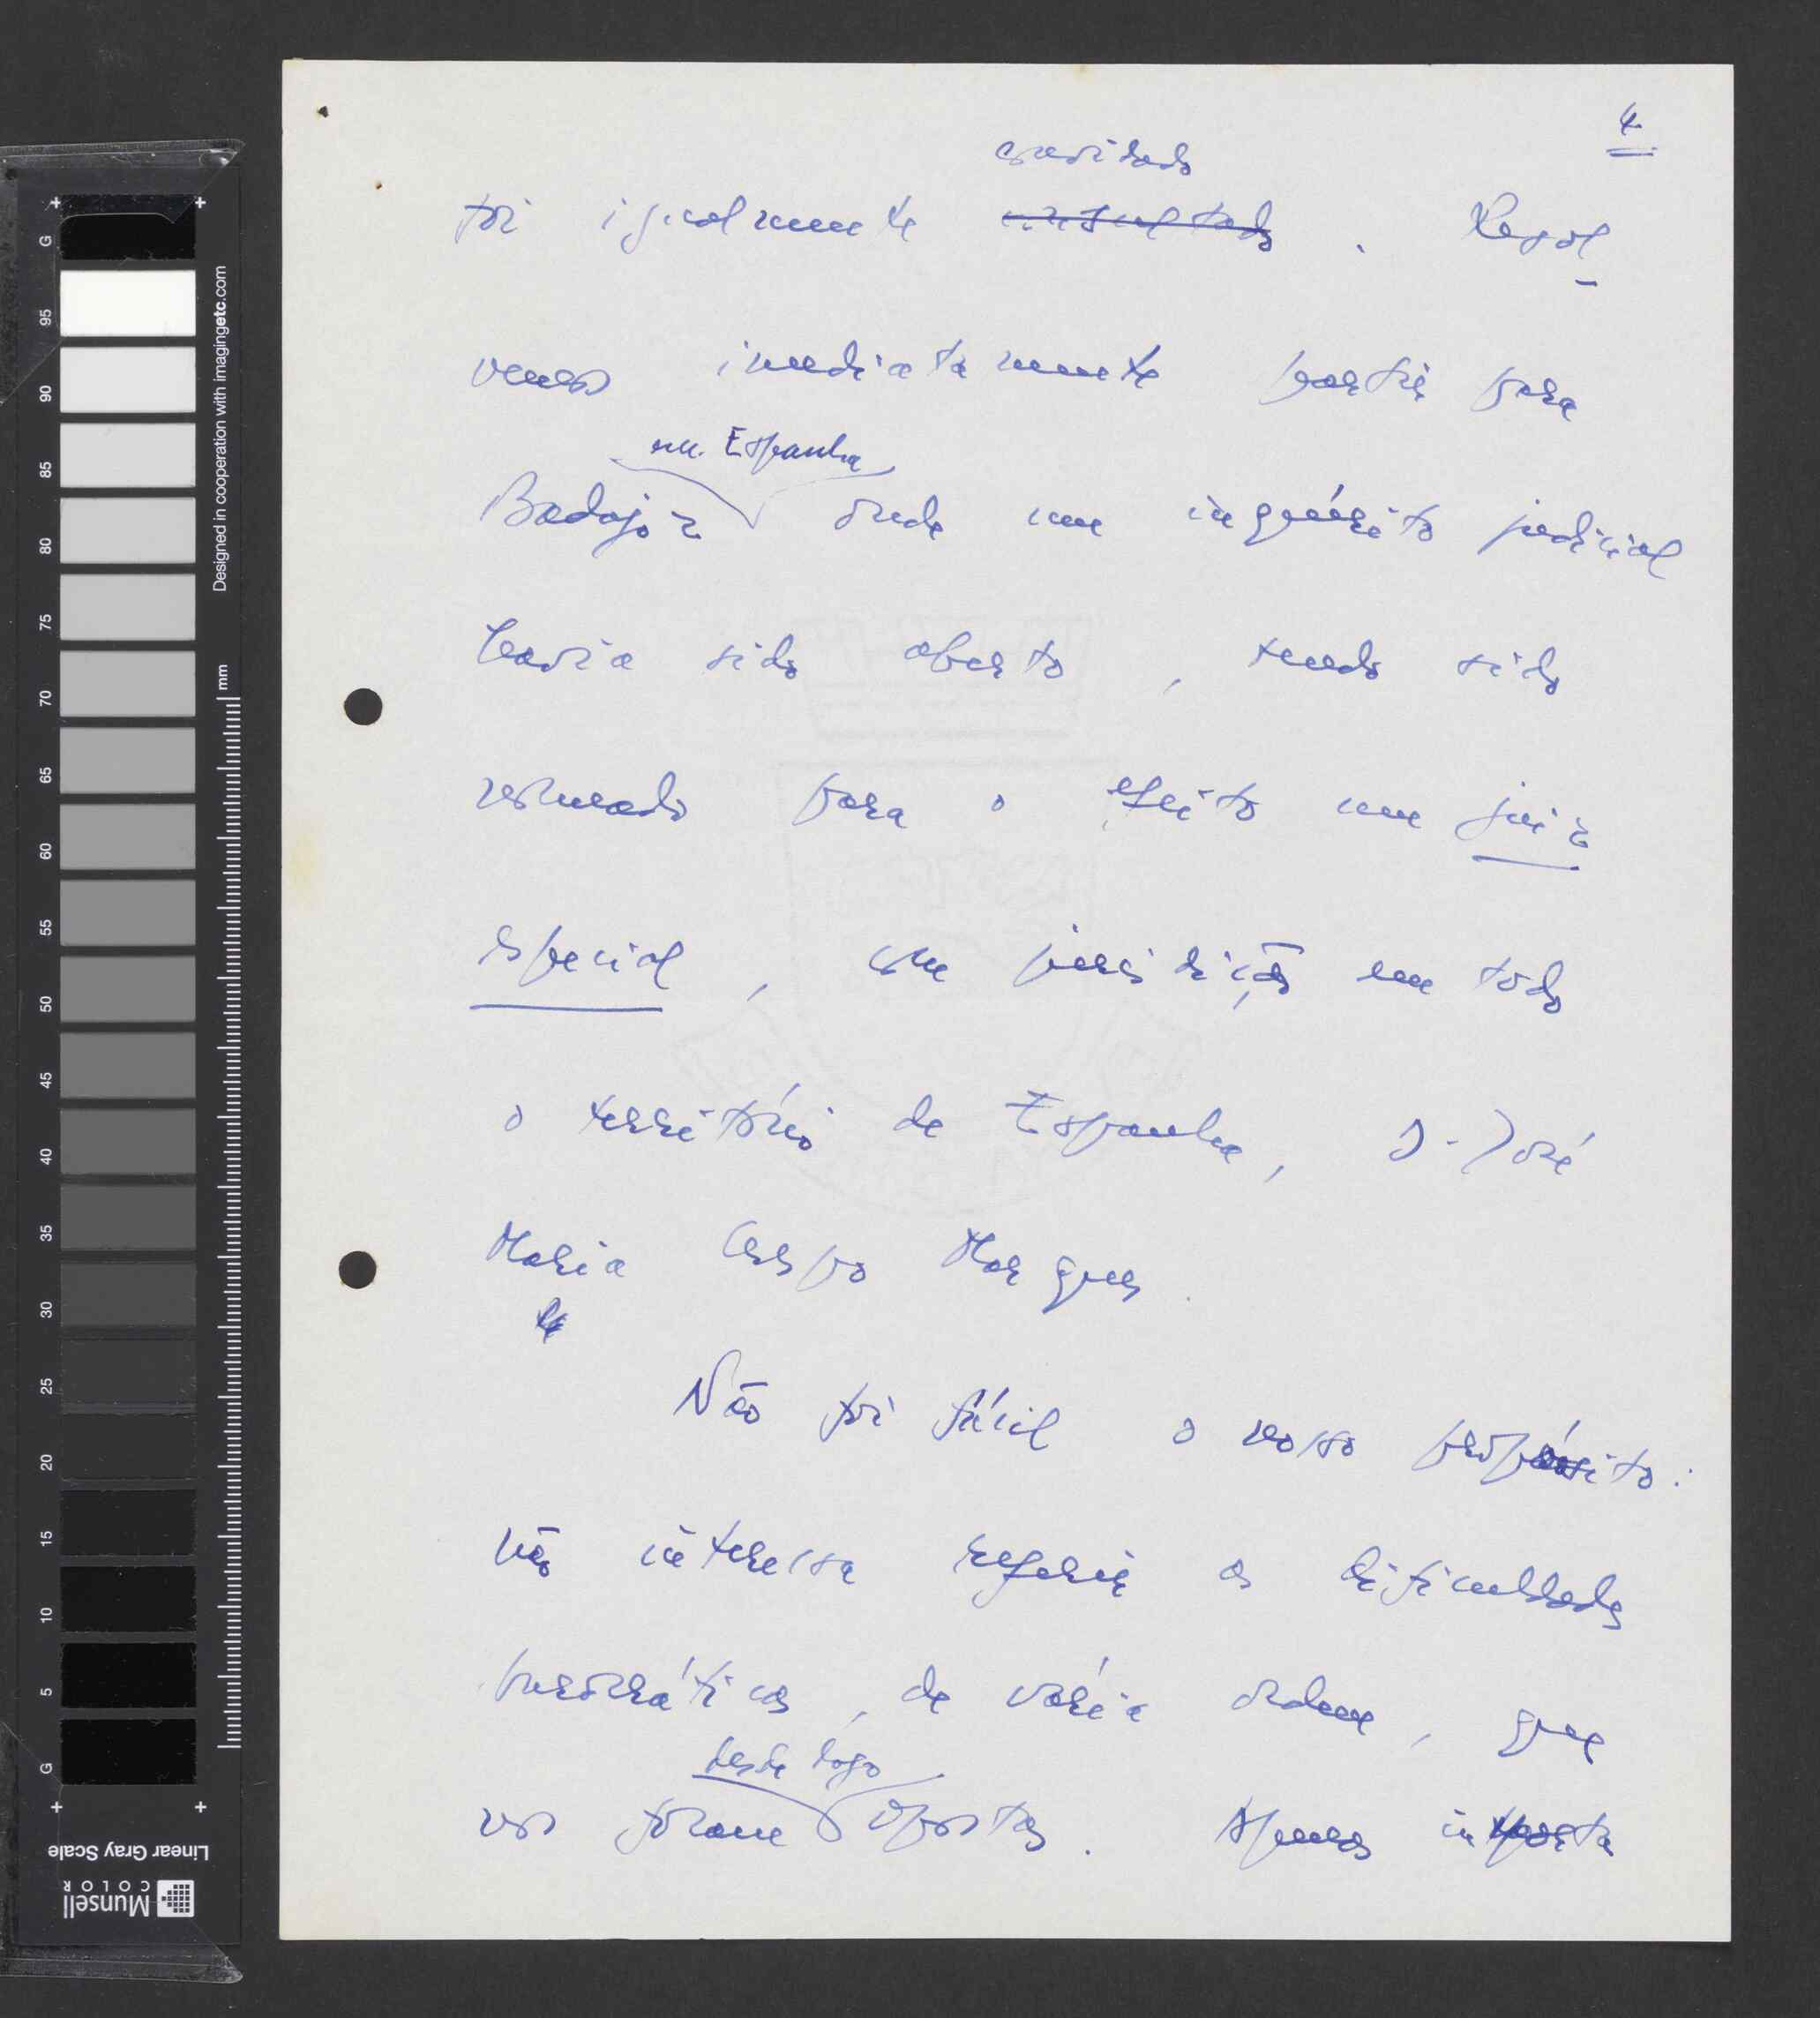 4
convidado
foi igualmente consultado. Resol-
vemos imediatamente partir para
em Espanha
Badajoz onde um inquérito judicial
havia sido aberto, tendo sido
nomeado para o efeito um juiz
especial, com jurisdição em todo
o território de Espanha, D. José
Maria Crespo Marques.
Não foi fácil o nosso propósito:
não interessa referir as dificuldades
burocráticas, de vária ordem, que
desde logo
nos foram opostas. Apenas importa
G 95 90 85 80 75 70 65 60 55 50 45 40 35 30 25 20 15 10 5 G
Designed in cooperation with imagingetc.com
mm
Linear Gray Scale
Munsell
COLOR